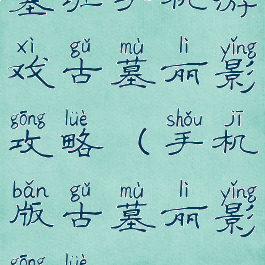 墓班手机游
xì gǔ mù lì yǐng
戏古墓丽影
gōng lüè shǒu jī
攻略（手机
bǎn gǔ mù lì yǐng
版古墓丽影
gōng lüè